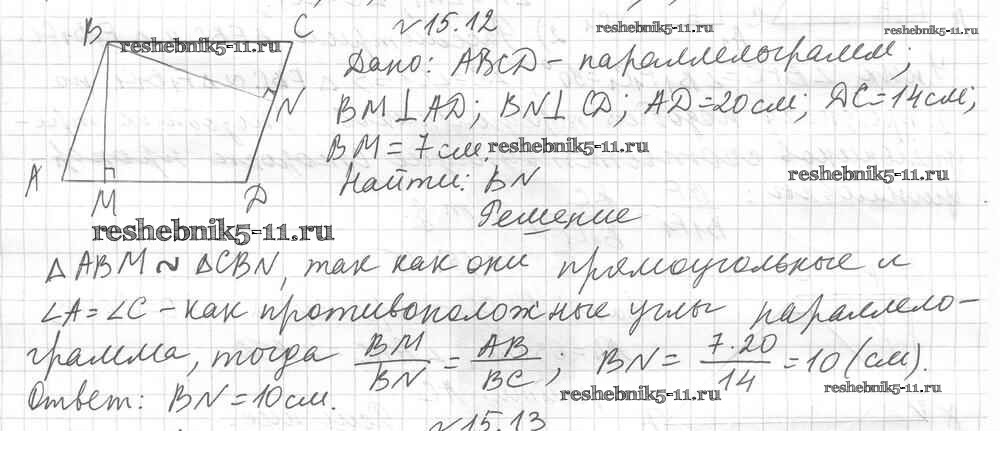 №15.12
B C
reshebnik5-11.ru
reshebnik5-11.ru
reshebnik5-11.ru
Дано: ABCD - параллелограмм;
N
BM ⊥ AD; BN ⊥ CD; AD = 20 см; DC = 14 см;
BM = 7 см.
reshebnik5-11.ru
A M D
Найти: BN
reshebnik5-11.ru
Решение
reshebnik5-11.ru
Δ ABM ~ ΔCBN, так как они прямоугольные и
∠A = ∠C - как противоположные углы параллело-
грамма, тогда BM/BN = AB/BC; BN = 7·20/14 = 10 (см).
Ответ: BN = 10 см.
reshebnik5-11.ru
reshebnik5-11.ru
№15.13